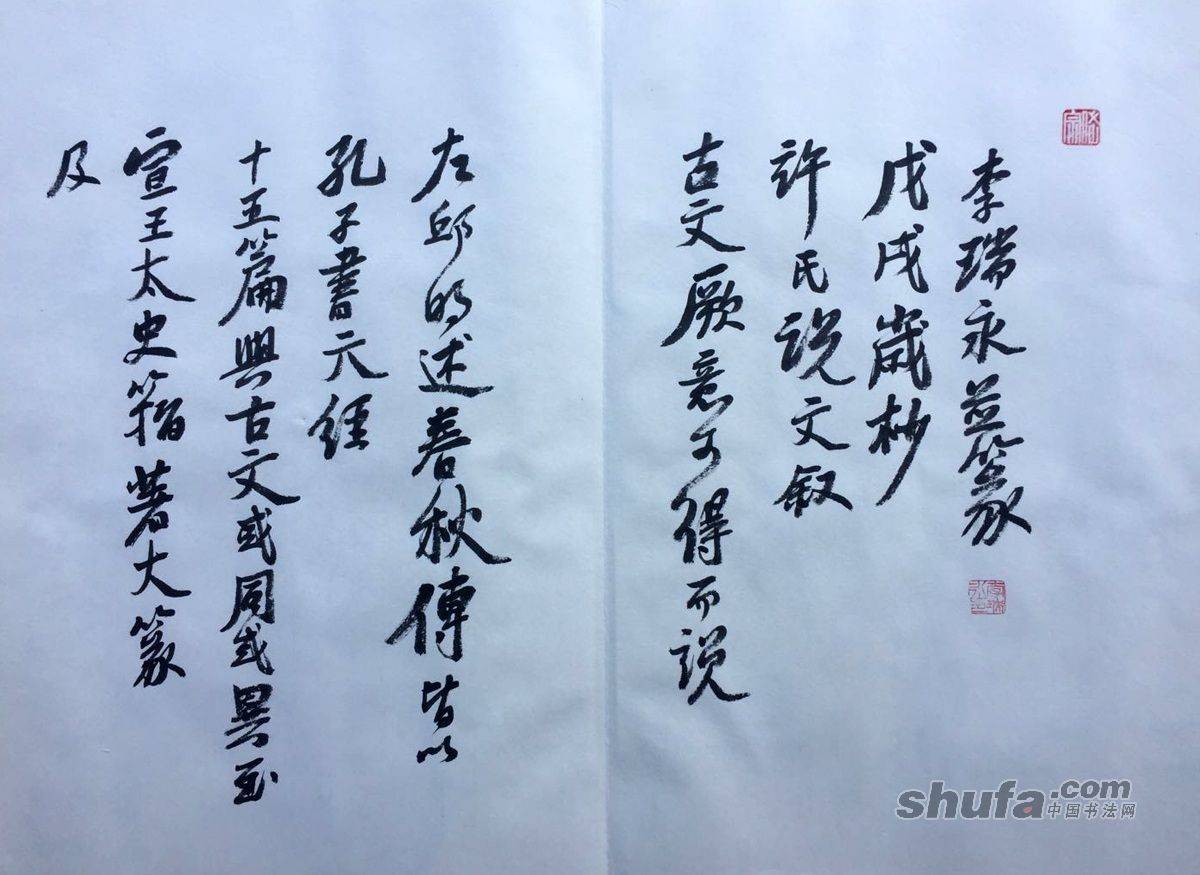 及
宣王太史籀著大篆
十五篇與古文或同或異至
孔子書六經
左邱明述春秋傳皆以
古文厥意可得而說
許氏說文叙
戊戌歲杪
李瑞永並篆
shufa.com
中国书法网